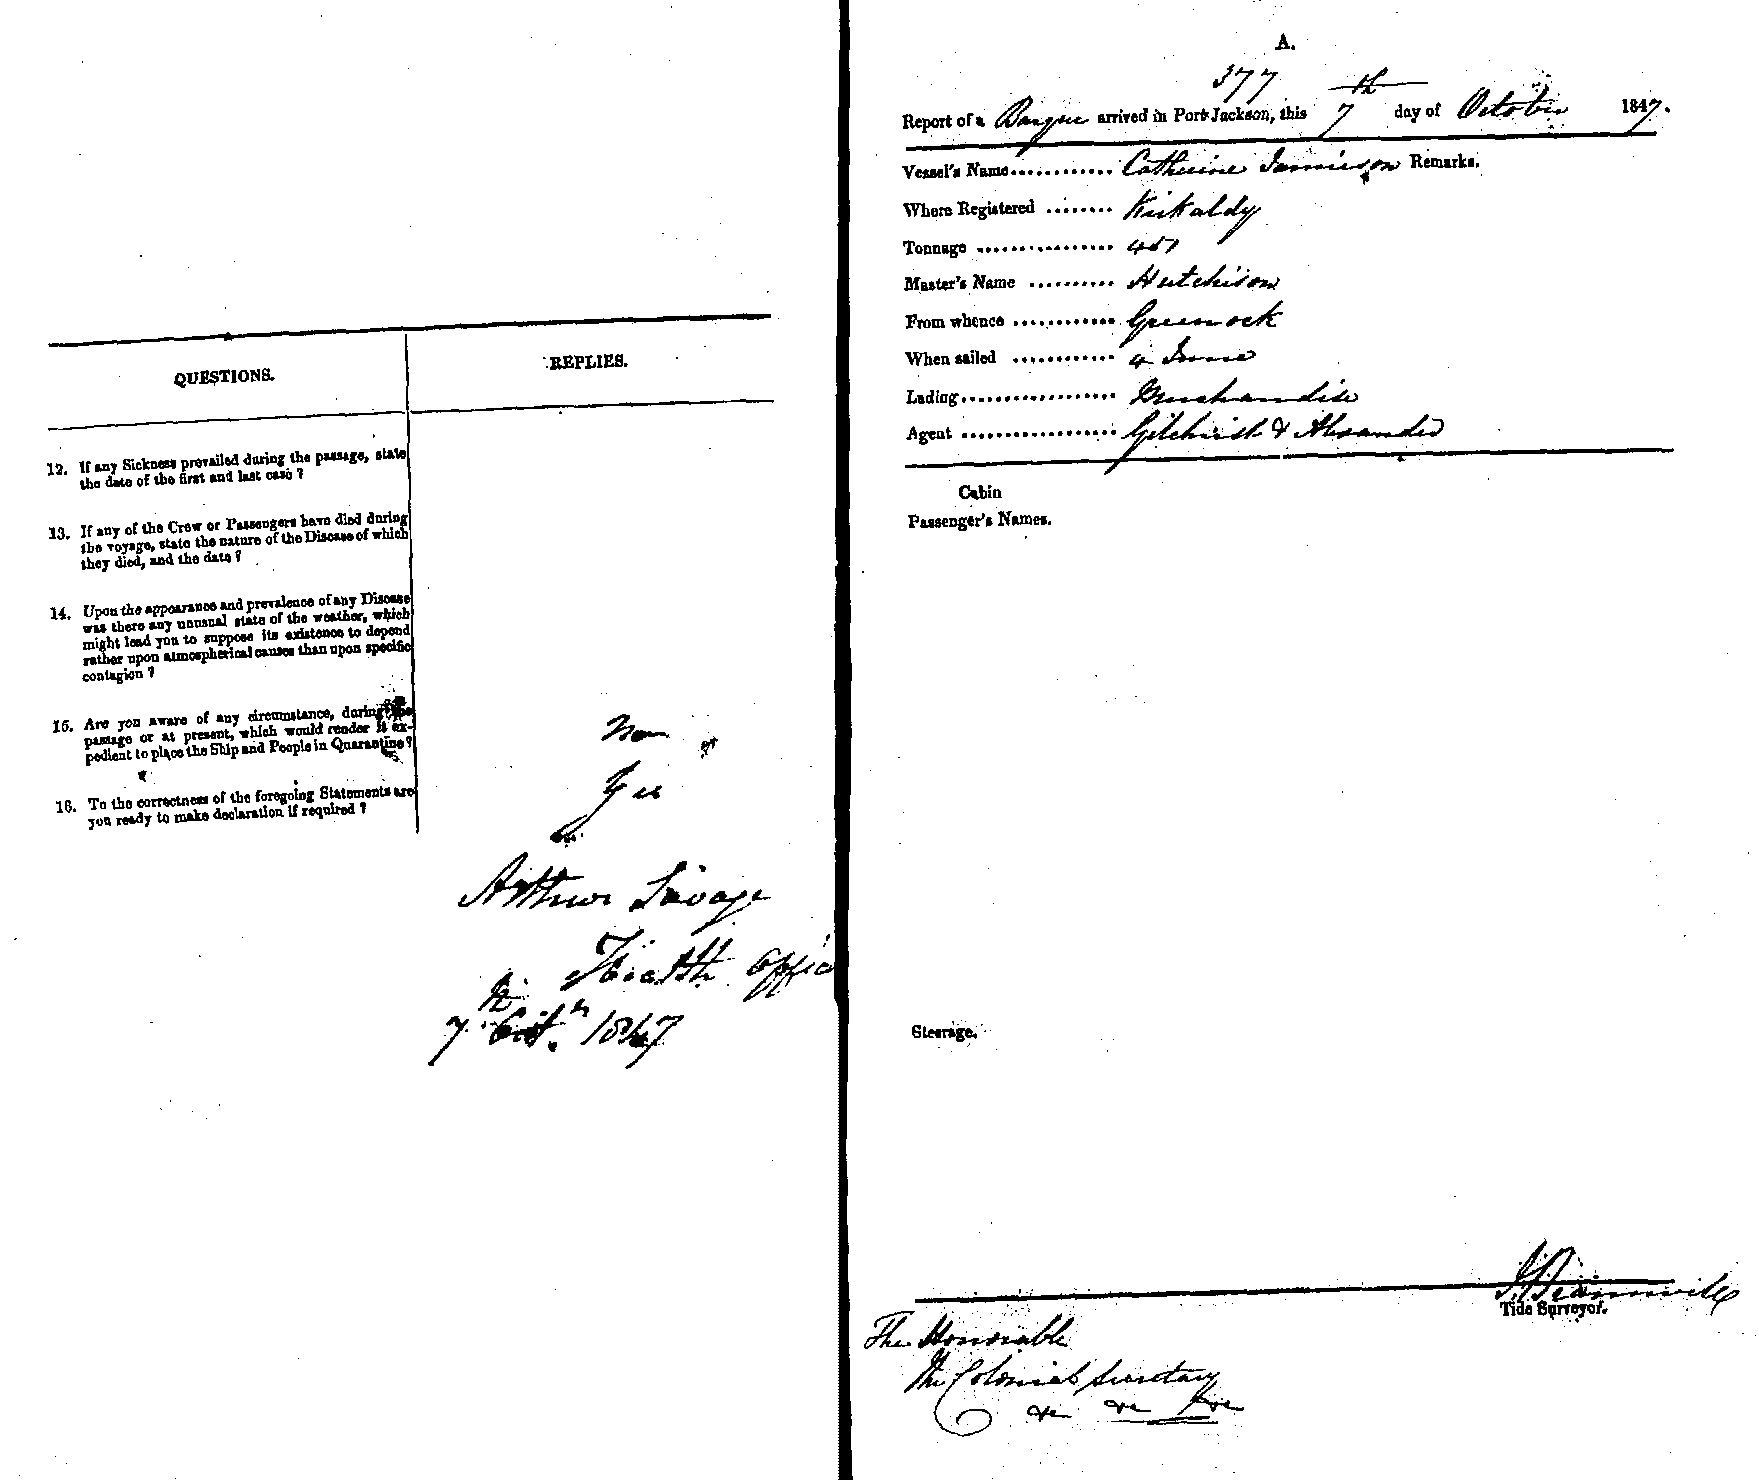 QUESTIONS.
REPLIES.
12. If any Sickness prevailed during the passage, state
the date of the first and last case ?
13. If any of the Crew or Passengers have died during
the voyage, state the nature of the Disease of which
they died, and the date ?
14. Upon the appearance and prevalence of any Disease
was there any unusual state of the weather, which
might lead you to suppose its existence to depend
rather upon atmospherical causes than upon specific
contagion ?
15. Are you aware of any circumstance, during the
passage or at present, which would render it ex-
pedient to place the Ship and People in Quarantine ?
No
16. To the correctness of the foregoing Statements are
you ready to make declaration if required ?
Yes
Arthur Savage
Health Offic
7th Oct. 1847
A.
377
Report of a Barque arrived in Port Jackson, this 7th day of October 1847.
Vessel's Name............ Catherine Jamieson Remarks.
Where Registered ........ Kirkaldy
Tonnage ................
Master's Name .......... Hutchison
From whence ............ Greenock
When sailed ............ 4 June
Lading.................. Merchandise
Agent .................. Gilchrist & Alexander
Cabin
Passenger's Names.
Steerage.
Tide Surveyor.
The Honorable
The Colonial Secretary
&c &c &c